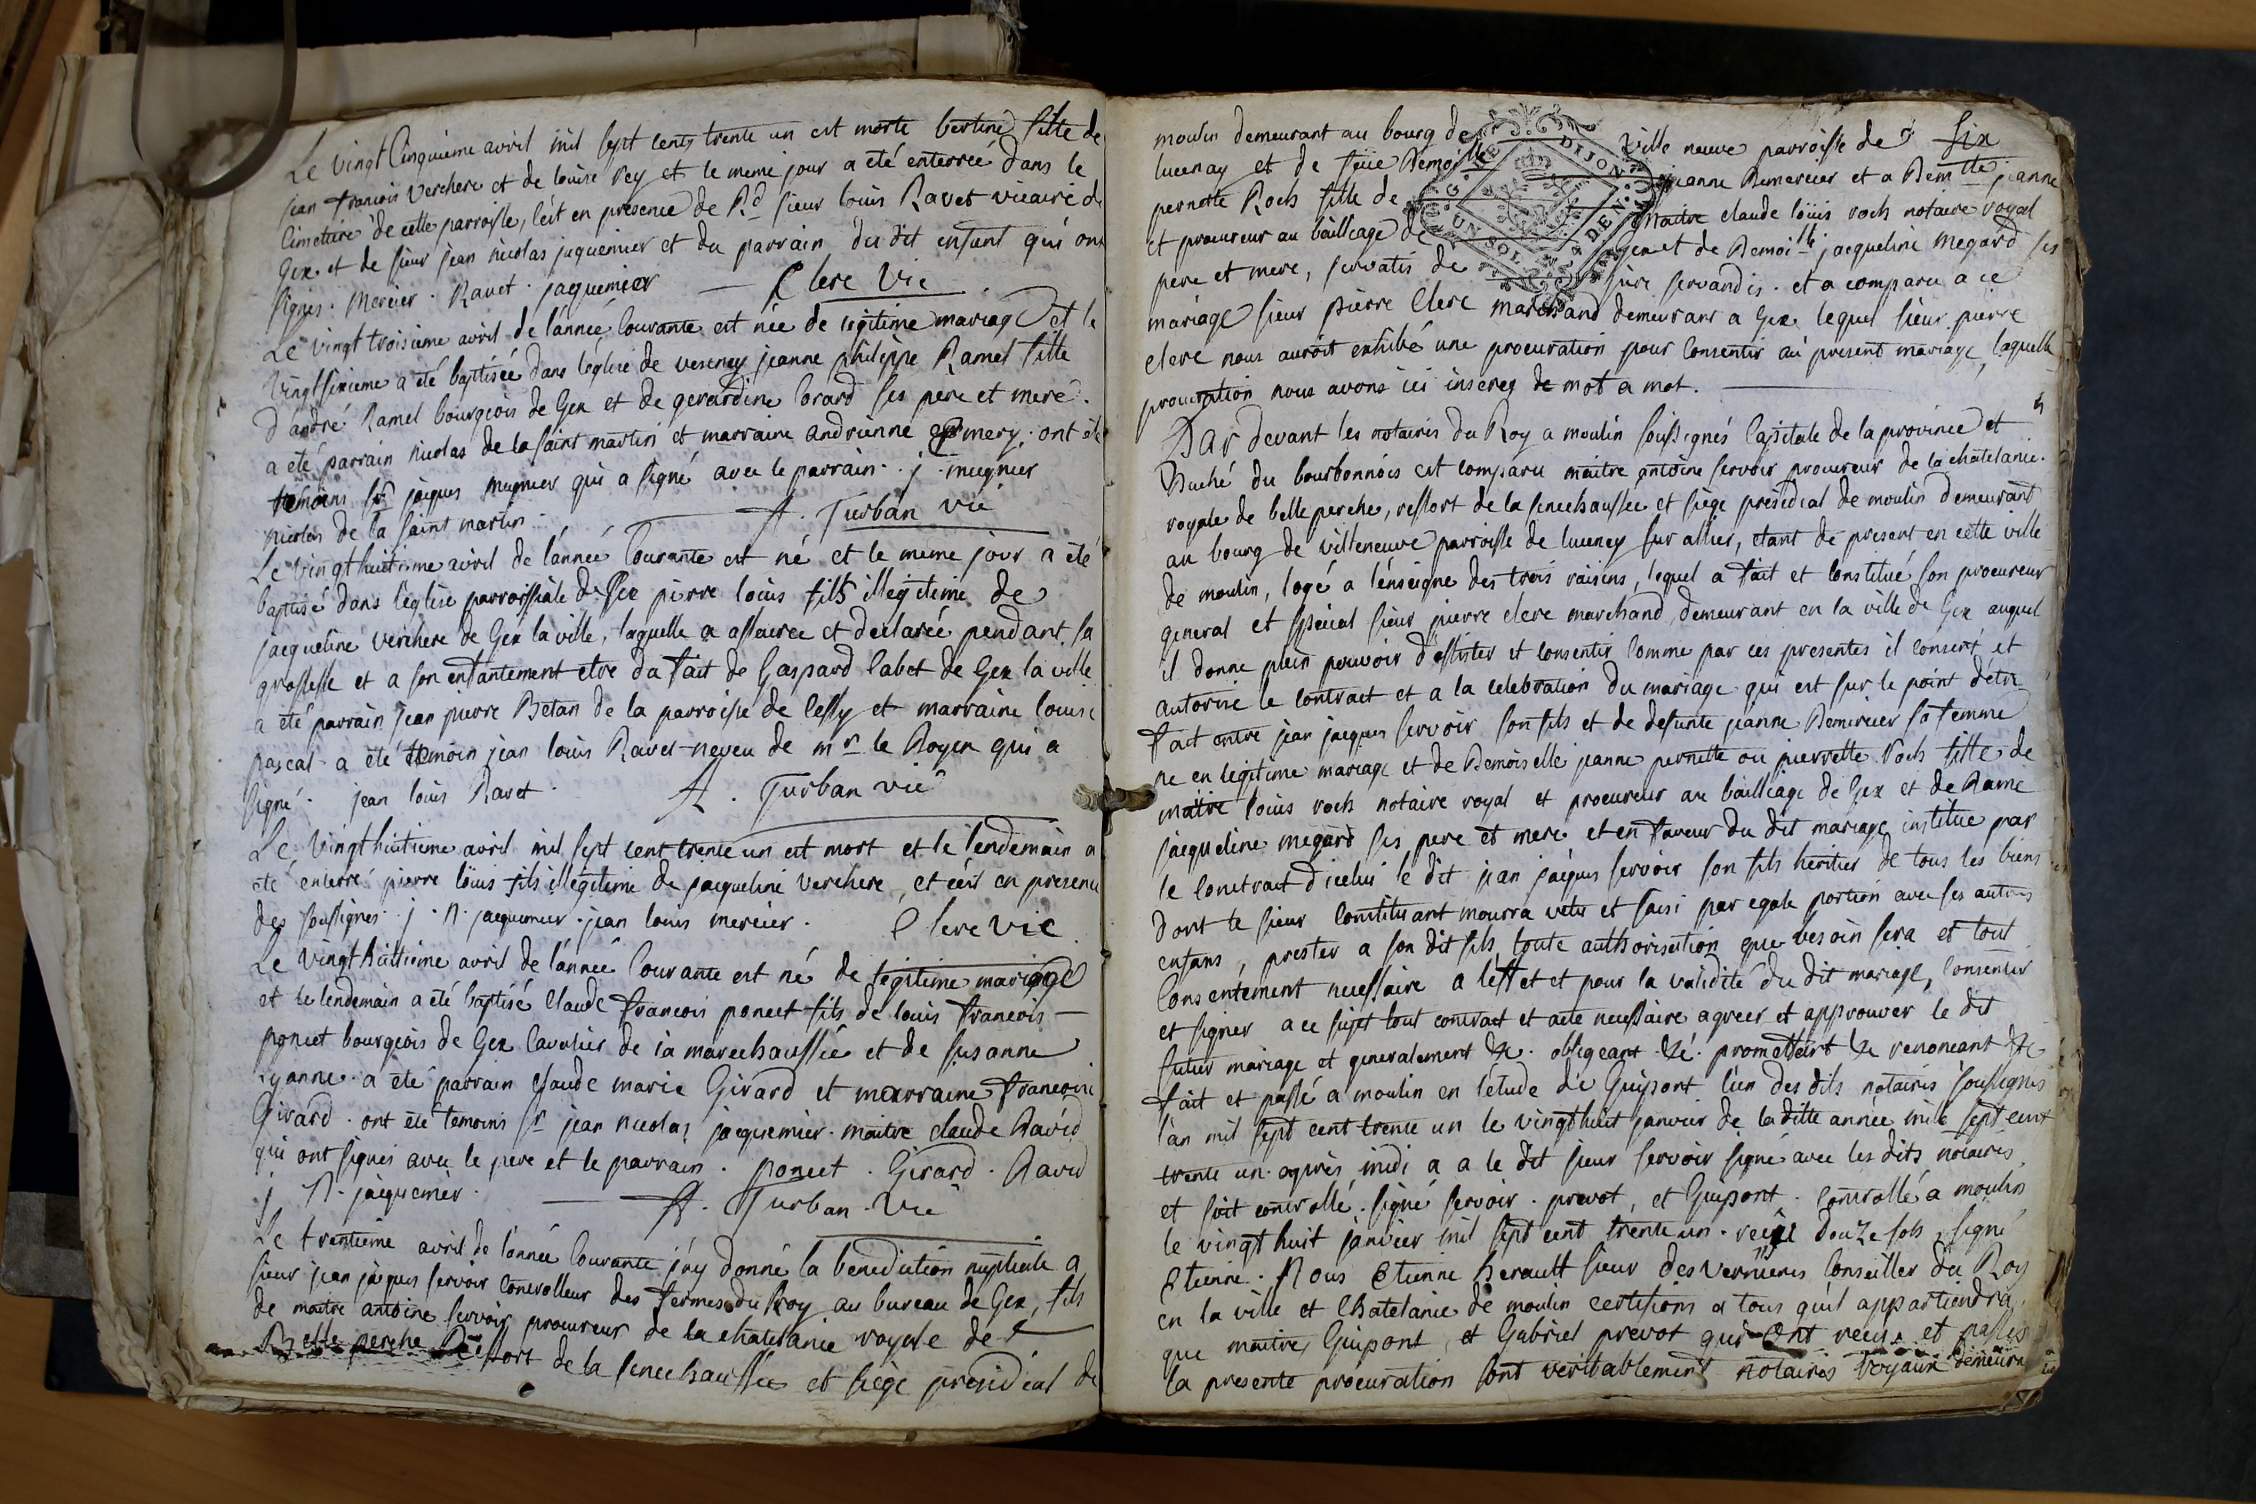 Le vingt Cinquieme avril mil sept cents trente un est morte bertine fille de
jean francois verchere et de louise Rey et le meme jour a été enterrée dans le
Cimetiere de cette parroisse, c'est en presence de Rd sieur louis Ravet vicaire de
Gex et de sieur jean nicolas jaquemier et du parrain du dit enfant qui ont
signes. Mercier. Ravet. jaquemier Clerc Vic
Le vingt troisieme avril de l'année Courante est née de legitime mariage et le
vingt sixieme a été baptisée dans l'eglise de vesency jeanne philippe Ramel fille
d'andré Ramel bourgeois de Gex et de gerardine Brard ses pere et mere.
a été parrain nicolas de la saint martin et marraine andrienne Emery. ont été
temoins sr jaques mugnier qui a signé avec le parrain. j. mugnier
nicolas de la saint martin. A. Turban vic
Le vingt huitieme avril de l'année Courante est né et le meme jour a été
baptisé dans l'eglise parroissiale de Gex pierre louis fils illegitime de
jacqueline verchere de Gex la ville, laquelle a assuree et declarée pendant sa
grossesse et a son enfantement etre du fait de Gaspard Cabet de Gex la ville
a été parrain jean pierre Betan de la parroisse de Cessy et marraine louise
pascal a été temoin jean louis Ravet neveu de mr le Doyen qui a
signé. jean louis Ravet. A. Turban vic
Le vingt huitieme avril mil sept cent trente un est mort et le lendemain a
eté enterré pierre louis fils illegitime de jacqueline verchere, et c'est en presence
des soussignes. j. n. jaquemier. jean louis mercier. Clerc vic
Le vingt huitieme avril de l'année Courante est né de legitime mariage
et le lendemain a été baptisé Claude francois poncet fils de louis francois
poncet bourgeois de Gex Cavalier de la marechaussée et de susanne
yanne. a été parrain Claude marie Girard et marraine francoise
Girard. ont été temoins sr jean nicolas jaquemier. maitre claude David
qui ont signés avec le pere et le parrain. poncet. Girard. David
j. N. jaquemier. A. Turban. Vic
Le trentieme avril de l'année Courante j'ay donné la benediction nuptiale a
sieur jean jaques servoir Controlleur des fermes du Roy au bureau de Gex, fils
de maitre antoine servoir procureur de la chatelanie royale de
Belle perche Ressort de la senechaussée et siège presidial de
moulin demeurant au bourg de ville neuve parroisse de six
lucenay et de feüe Demoiselle jeanne Demercier et a Demlle jeanne
pernette Roch fille de maitre claude loüis roch notaire royal
et procureur au bailliage de gex et de Demoiselle jacqueline megard ses
pere et mere, servatis de jure servandis. et a comparu a ce
mariage sieur pierre Clerc marchand demeurant a Gex lequel sieur pierre
clerc nous auroit exhibé une procuration pour Consentir au present mariage, laquelle
procuration nous avons ici inserez de mot a mot.
G. DE DIJON
UN SOL. 4. DEN.
Par devant les notaires du Roy a moulin soussignés Capitale de la province et
Duché du bourbonnois est comparu maitre antoine servoir procureur de la chatelanie
royale de belle perche, ressort de la senechaussée et siège presidial de moulin demeurant
au bourg de villeneuve parroisse de lucenay sur allier, etant de present en cette ville
de moulin, logé a l'enseigne des trois raisins, lequel a fait et Constitué son procureur
general et special sieur pierre clerc marchand, demeurant en la ville de Gex auquel
il donne plein pouvoir d'assister et consentir Comme par ces presentes il consent et
autorise le contract et a la celebration du mariage qui est sur le point d'etre
fait entre jean jacques servoir son fils et de defunte jeanne Demercier sa femme
ne en legitime mariage et de Demoiselle jeanne pernette ou pierrette Roch fille de
maitre louis roch notaire royal et procureur au bailliage de Gex et de Dame
jacqueline megard ses pere et mere et en faveur du dit mariage institue par
le Contract d'icelui le dit jean jaques servoir son fils heritier de tous les biens
dont le sieur Constituant mourra vetu et saisi par egale portion avec ses autres
enfans, prester a son dit fils toute authorisation que besoin sera et tout
Consentement necessaire a l'effet et pour la validité du dit mariage, Consentir
et signer a ce sujet tout contract et acte necessaire agreer et approuver le dit
futur mariage et generalement &c. obligeant &c. promettant &c renoncant &c
fait et passé a moulin en l'etude de Guipont l'un des dits notaires soussignés
l'an mil sept cent trente un le vingt huit janvier de la ditte année mile sept cent
trente un. aprés midi a a le dit sieur servoir signé avec les dits notaires
et soit controllé. signé servoir. prevot, et Guipont. Controllé a moulin
le vingt huit janvier mil sept cent trente un. reçû douze sols, signé
Etienne. Nous Etienne herault sieur des vernieres Conseiller du Roy
en la ville et Chatelanie de moulin certifions a tous qu'il appartiendra
que maitres Guipont, et Gabriel prevot qui ont recus et passés
la presente procuration sont veritablement notaires royaux demeura